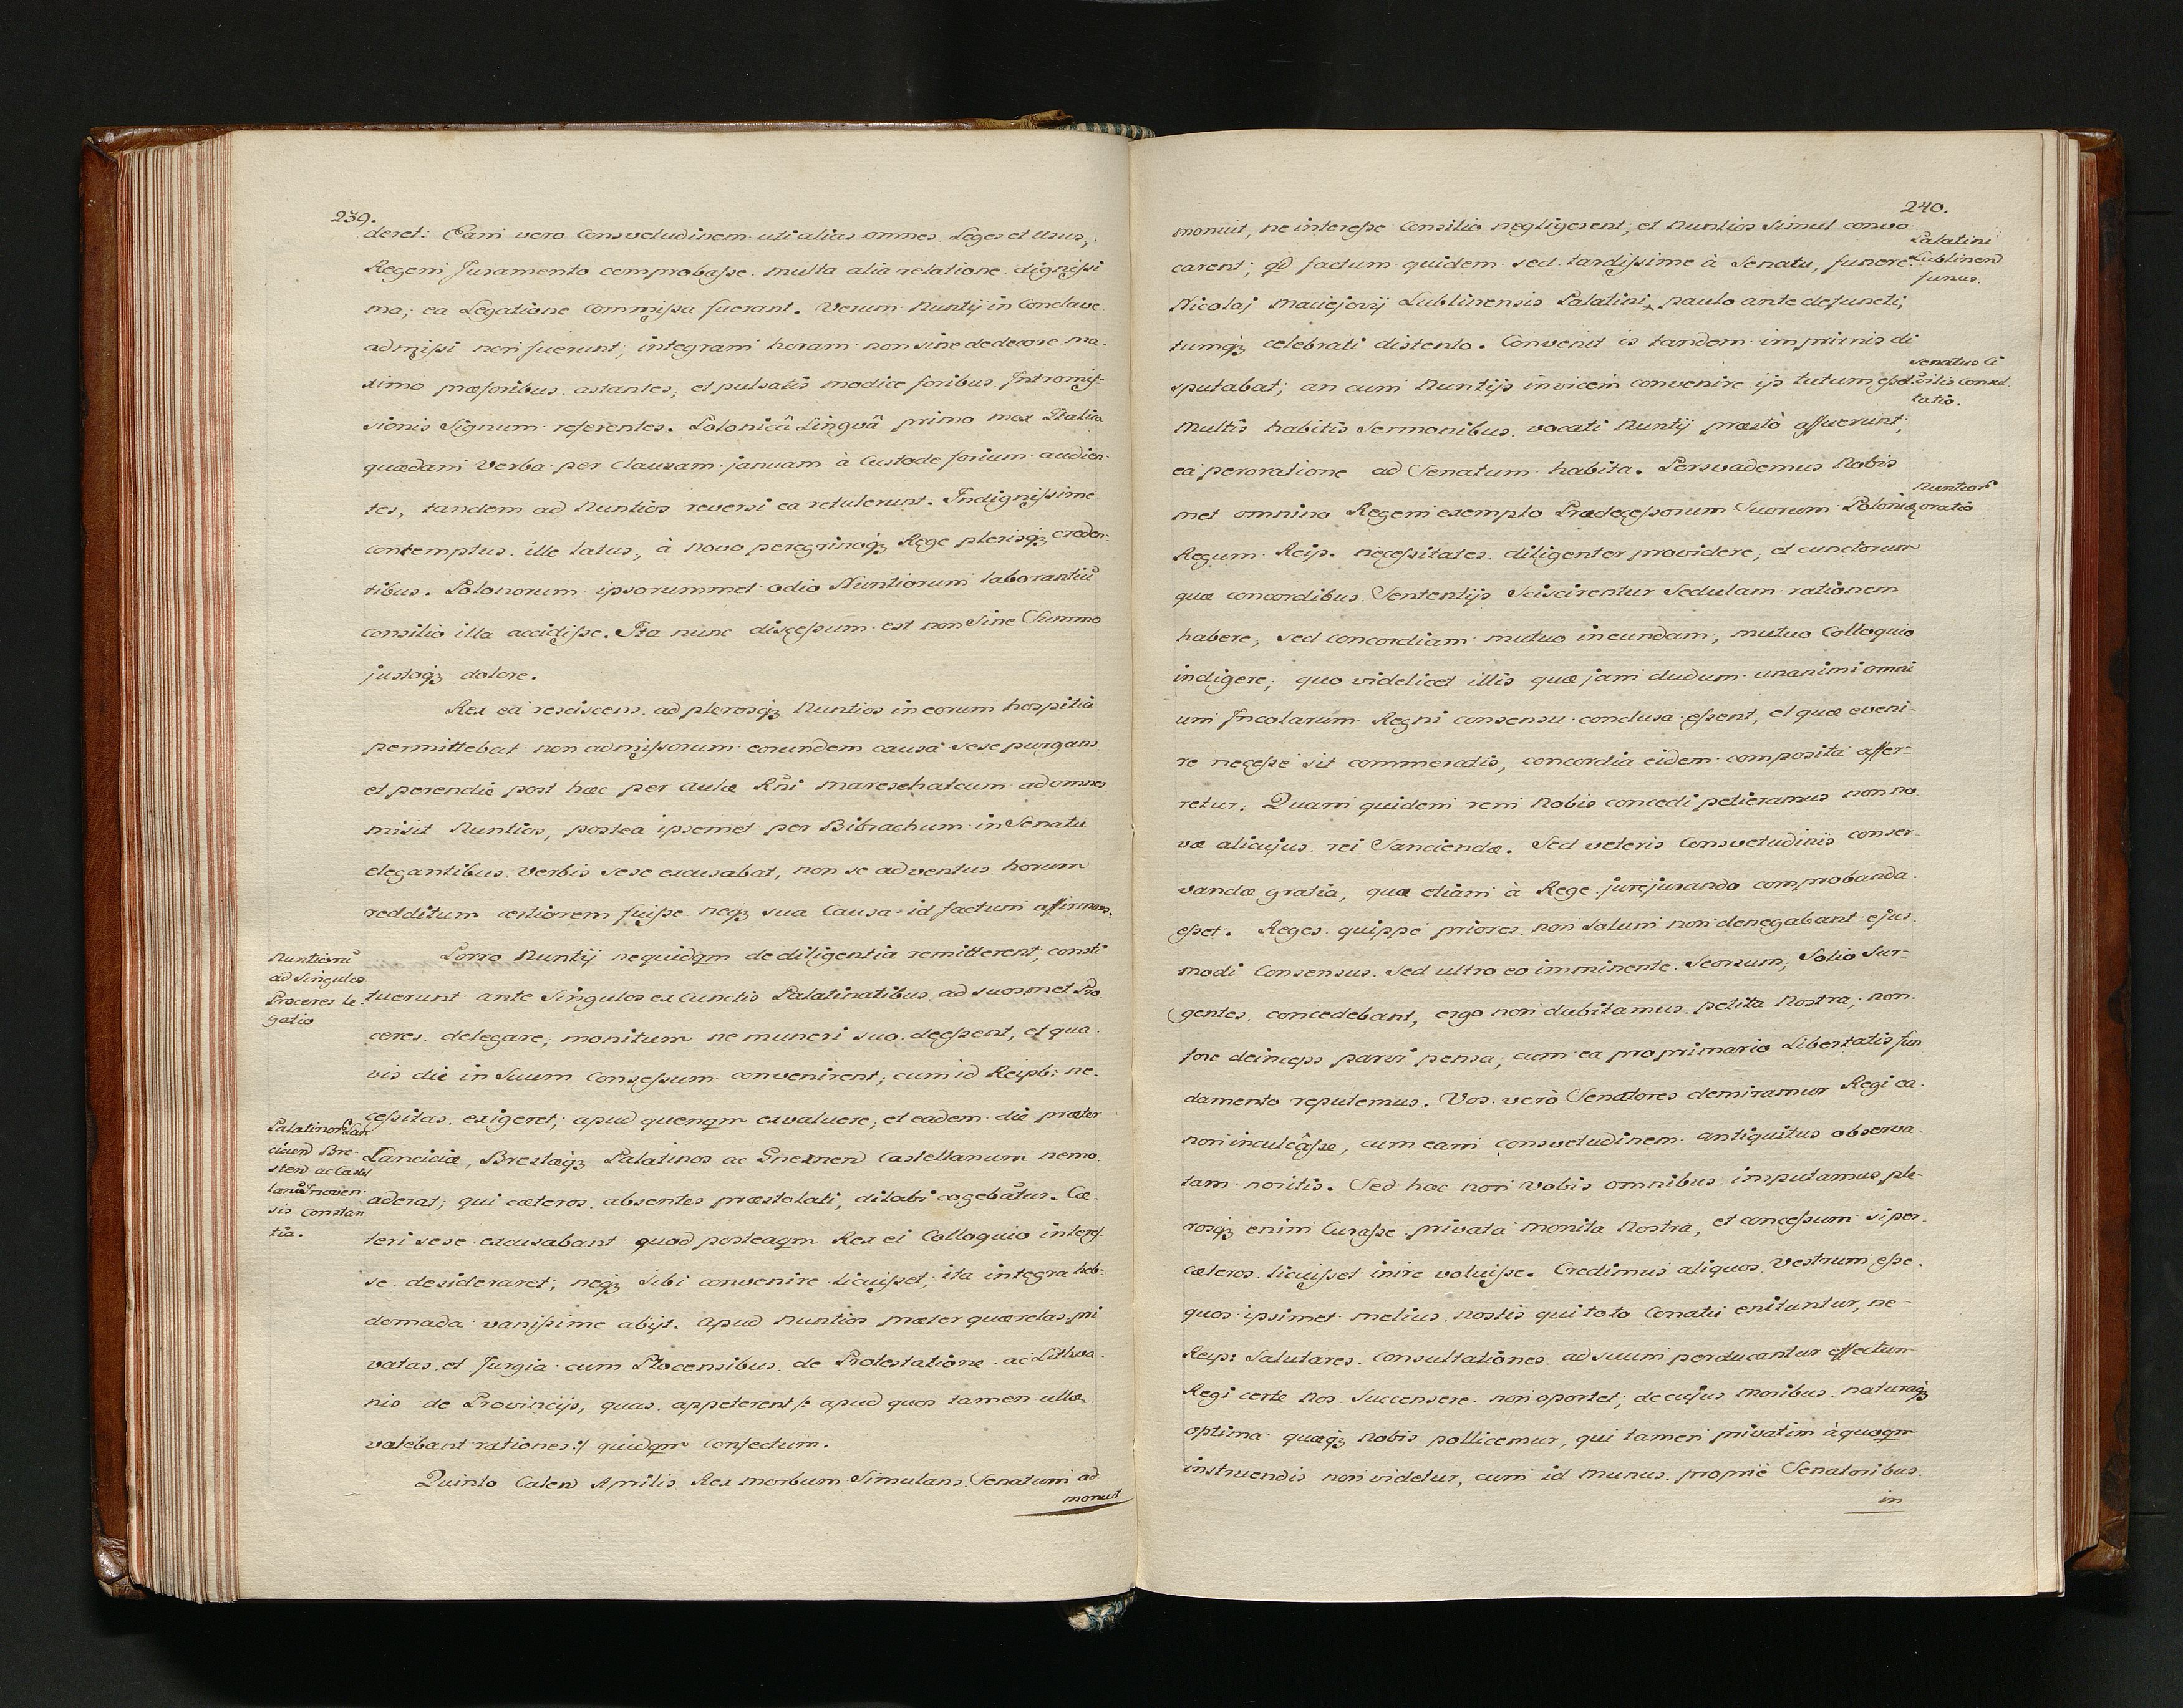 239.
deret: Eam vero Consvetudinem uti alias omnes Leges et Usus,
Regem Juramento comprobaſse multa alia relatione digniſsi
ma, ea Legatione Commiſsa fuerant. Verum Nuntij in Conclave
admiſsi non fuerunt, integram horam non sine dedecore ma-
ximo præforibus astantes, et pulsatis modice foribus Intromiſ-
sionis Signum referentes. Polonicâ Linguâ primo mox Italica
quædam Verba per Clausam januam à Custode forium audien-
tes, tandem ad Nuntios reversi ea retulerunt. Indigniſsime
contemptus ille latus, à novo peregrinoq3 Rege plerisq3 creden-
tibus. Polonorum ipsorummet odio Nuntiorum laborantiũ
consilio illa accidiſse. Ita nunc disceſsum est non Sine Summo
justoq3 dolore.
Rex ea resciscens ad plerosq3 Nuntios in eorum hospitia
permittebat non admiſsorum eorundem causa sese purgans
et perendie post hæc per Aulæ Rñi Mareschalcum ad omnes
misit Nuntios, postea ipsemet per Bibrachum in Senatu
elegantibus Verbis sese excusabat, non se adventus horum
redditum certiorem fuiſse neq3 sua Causa id factum affirmans.
Nuntiorũ
ad Singulos
Proceres le-
gatio
Porro Nuntij ne quidqm de diligentia remitterent, consti
tuerunt ante Singulos ex Cunctis Palatinatibus ad suosmet Pro
ceres delegare, monitum ne muneri suo deeſsent, et qua-
vis die in Suum Conseſsum convenirent; cum id Reipb: ne-
ceſsitas exigeret; apud quenqm exvaluere, et eadem die præter
Palatinor Lan
cicien Bre-
sten ac Castel
lani Inoven
sis Constan
tia.
Lanciciæ, Brestæq3 Palatinos ac Gneznen Castellanum nemo
aderat; qui cæteros absentes præstolati, dilabi cogebãtur. Cæ-
teri sese excusabant quod posteaqm Rex ei Colloquio intereſ-
se desideraret; neq3 Sibi convenire licuiſset, ita integra heb-
domada vaniſsime abijt. Apud Nuntios præter quærelas pri
vatas et Jurgia cum Plocensibus de Protestatione ac Lithva-
nis de Provincijs, quas appeterent /: apud quos tamen ullæ
valebant rationes :/ quidqm Confectum.
Quinto Calen Aprilis Rex morbum Simulans Senatum ad
monuit
240.
monuit, ne intereſse Consilio negligerent; et Nuntios Simul convo
carent; qd factum quidem sed tardiſsime à Senatu, funere
Palatini
Lublinen
funus.
Nicolai Maciejovij Lublinensis Palatini, paulo ante defuncti,
tumq3 celebrati distento. Convenit is tandem imprimis di
sputabat; an cum Nuntijs invicem convenire ijs tutum eſset
Senatus Ci
vilis consul
tatio.
Multis habitis Sermonibus vocati Nuntij præstò affuerunt;
ea peroratione ad Senatum habita. Persvademus Nobis
met omnino Regem exemplo Prædeceſsorum Suorum Poloniæ
Nuntior
oratio
Regum Reip. neceſsitates diligenter providere, et cunctorum
quæ concordibus Sententijs Sciscirentur Sedulam rationem
habere, sed concordiam mutuo ineundam, mutuo Colloquio
indigere; quo videlicet illis quæ jam dudum unanimi omni
um Incolarum Regni consensu conclusa eſsent, et quæ eveni-
re neceſse sit commeratis, concordia eidem composita affer-
retur. Quam quidem rem Nobis concedi petieramus non no
væ alicujus rei Sanciendæ. Sed veteris Consvetudinis conser-
vandæ gratia, quæ etiam à Rege jurejurando comprobanda
eſset. Reges quippe priores non Solum non denegabant ejus-
modi Consensus Sed ultro eo imminente Seorsum, Solio Sur-
gentes concedebant, ergo non dubitamus petita Nostra, non
fore deinceps parvi pensa, cum ea pro primario Libertatis fun
damento reputemus. Vos verò Senatores demiramur Regi ea
non inculcâſse, cum eam consvetudinem antiquitus observa-
tam noritis. Sed hoc non Vobis omnibus imputamus ple-
rosq3 enim Curaſse privata monita Nostra, et conceſsum si per
cæteros licuiſset inire voluiſse. Credimus aliquos Vestrum eſse
quos ipsimet melius nostis qui toto Conatu enituntur, ne
Reip: Salutares Consultationes ad suum perducantur effectum
Regi certe Nos Succensere non oportet, de cujus moribus naturaq3
optima quæq3 nobis pollicemur, qui tamen privatim à quoqm
instruendis non videtur, cum id munus proprie Senatoribus
in